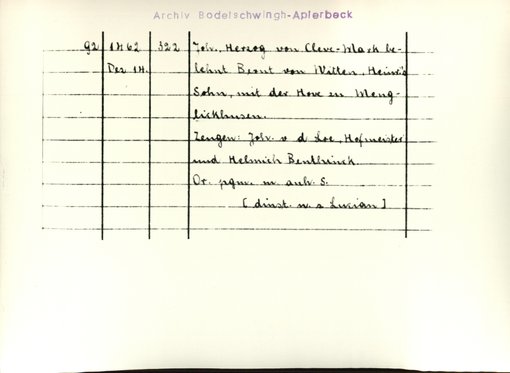 Archiv Bodelschwingh-Aplerbeck
92 1462 322 Joh., Herzog von Cleve-Mark be-
Dez 14. lehnt Bernt von Witten, Heinr's
Sohn, mit der Hove zu Meng-
lickhusen.
Zeugen: Joh. v d Loe, Hofmeister
und Helmich Benthinck.
Or. pgm. m. anh. S.
[dinst. n. s Lucian]